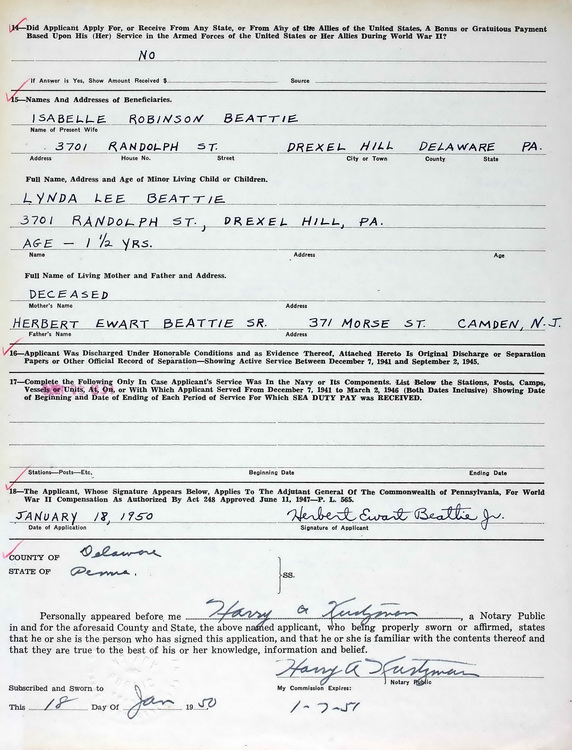 14—Did Applicant Apply For, or Receive From Any State, or From Any of the Allies of the United States, A Bonus or Gratuitous Payment
Based Upon His (Her) Service in the Armed Forces of the United States or Her Allies During World War II?
NO
If Answer is Yes, Show Amount Received $ Source
15—Names And Addresses of Beneficiaries.
ISABELLE ROBINSON BEATTIE
Name of Present Wife
3701 RANDOLPH ST. DREXEL HILL DELAWARE PA.
Address House No. Street City or Town County State
Full Name, Address and Age of Minor Living Child or Children.
LYNDA LEE BEATTIE
3701 RANDOLPH ST., DREXEL HILL, PA.
AGE - 1 1/2 YRS.
Name Address Age
Full Name of Living Mother and Father and Address.
DECEASED
Mother's Name Address
HERBERT EWART BEATTIE SR. 371 MORSE ST. CAMDEN, N.J.
Father's Name Address
16—Applicant Was Discharged Under Honorable Conditions and as Evidence Thereof, Attached Hereto Is Original Discharge or Separation
Papers or Other Official Record of Separation—Showing Active Service Between December 7, 1941 and September 2, 1945.
17—Complete the Following Only In Case Applicant's Service Was In the Navy or Its Components. List Below the Stations, Posts, Camps,
Vessels or Units, At, On, or With Which Applicant Served From December 7, 1941 to March 2, 1946 (Both Dates Inclusive) Showing Date
of Beginning and Date of Ending of Each Period of Service For Which SEA DUTY PAY was RECEIVED.
Stations—Posts—Etc. Beginning Date Ending Date
18—The Applicant, Whose Signature Appears Below, Applies To The Adjutant General Of The Commonwealth of Pennsylvania, For World
War II Compensation As Authorized By Act 248 Approved June 11, 1947—P. L. 565.
JANUARY 18, 1950 Herbert Ewart Beattie Jr.
Date of Application Signature of Applicant
COUNTY OF Delaware
STATE OF Penna. }ss.
Personally appeared before me Harry A , a Notary Public
in and for the aforesaid County and State, the above named applicant, who being properly sworn or affirmed, states
that he or she is the person who has signed this application, and that he or she is familiar with the contents thereof and
that they are true to the best of his or her knowledge, information and belief.
Harry A
Notary Public
Subscribed and Sworn to My Commission Expires:
This 18 Day Of Jan 1950 1-7-51